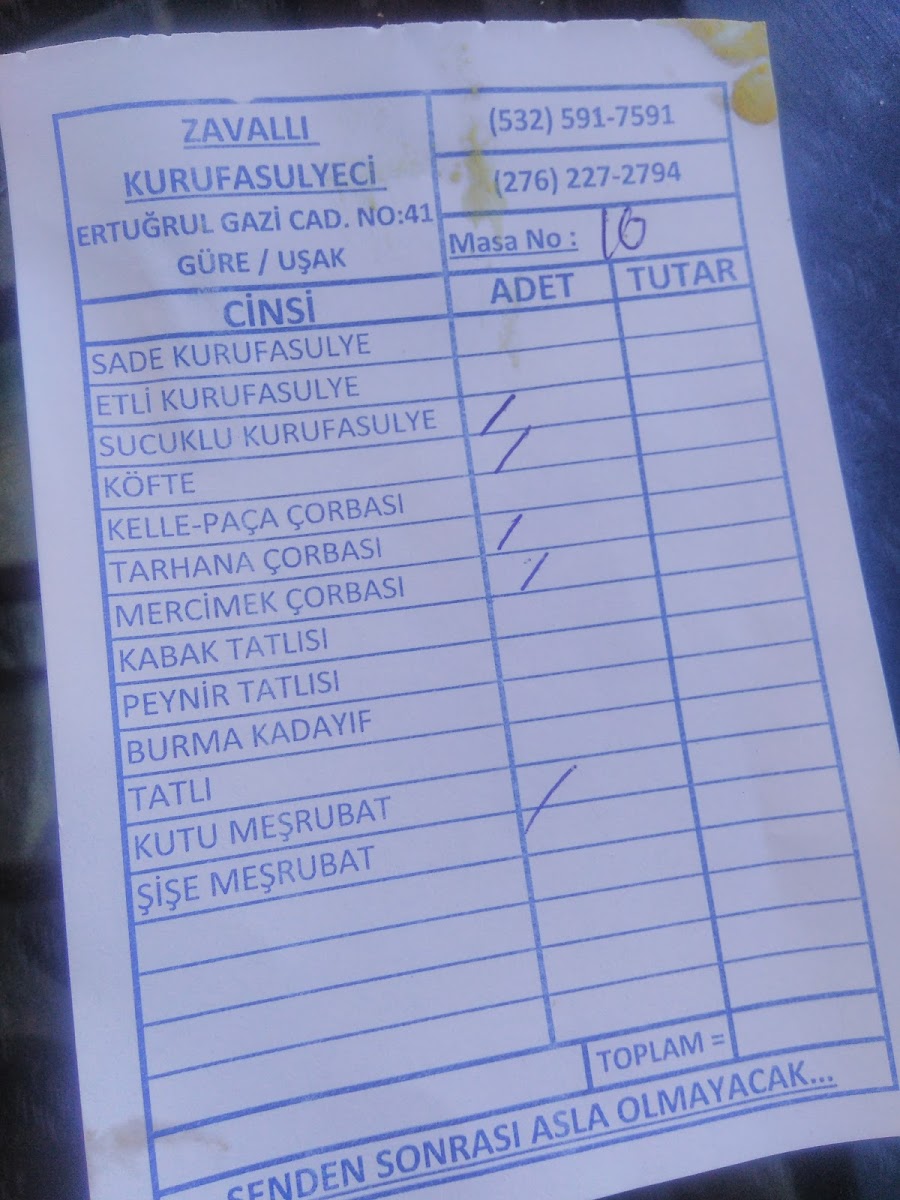 ZAVALLI
KURUFASULYECİ
ERTUĞRUL GAZİ CAD. NO:41
GÜRE / UŞAK
(532) 591-7591
(276) 227-2794
Masa No : 10
CİNSİ ADET TUTAR
SADE KURUFASULYE
ETLİ KURUFASULYE
SUCUKLU KURUFASULYE /
KÖFTE /
KELLE-PAÇA ÇORBASI
TARHANA ÇORBASI /
MERCİMEK ÇORBASI /
KABAK TATLISI
PEYNİR TATLISI
BURMA KADAYIF
TATLI
KUTU MEŞRUBAT /
ŞİŞE MEŞRUBAT
TOPLAM =
SENDEN SONRASI ASLA OLMAYACAK...